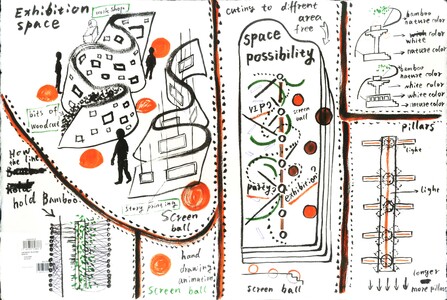 Exhibition
space
main shape
bits of
woodcut
How
the line
hold Bamboo
story printing
Screen
ball
hand
drawing
animation
Screen ball
cuting to diffrent
area
free
space
possibility
screen
ball
party?
exhibition?
screen ball
bamboo
nature color
white color
white
nature color
bamboo
nature color
white color
white color
pillars
light
light
longer
more pillars